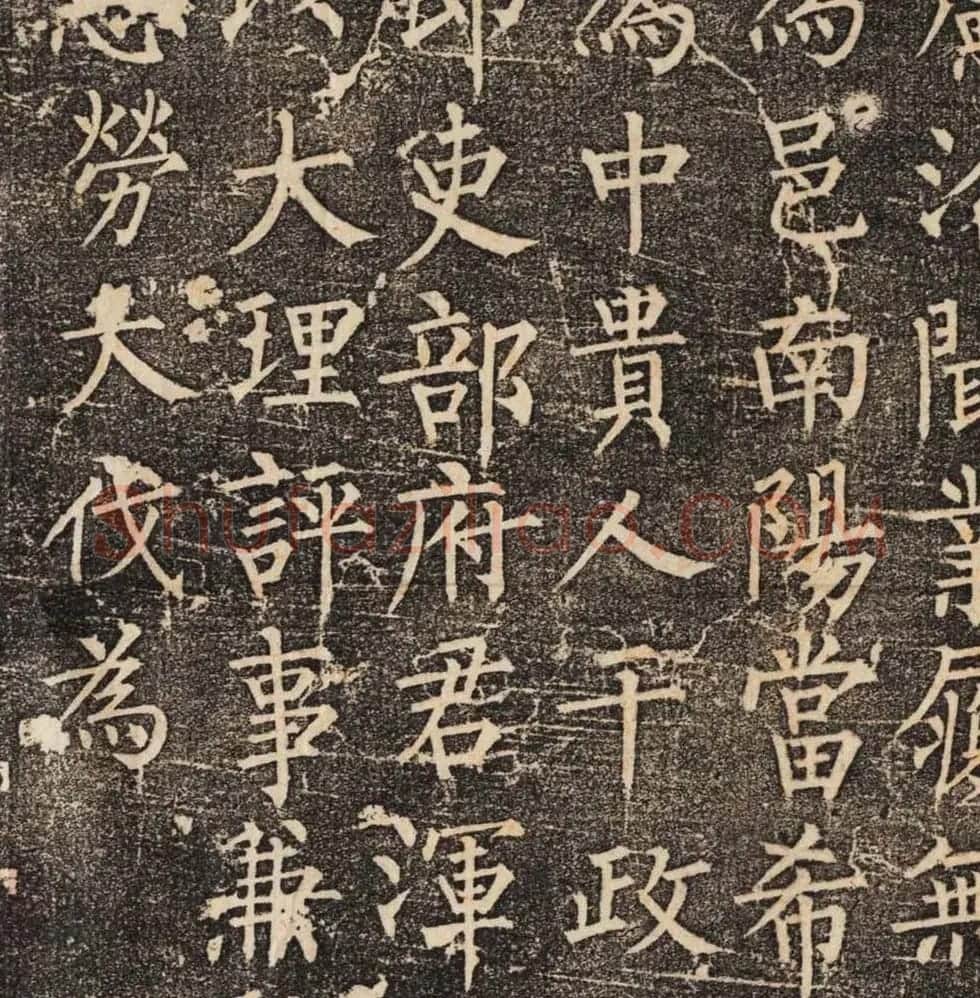 間業無
為邑南陽當希
為中貴人干政
吏部府君渾
大理評事兼
勞大伐為
Shufaziliao.com